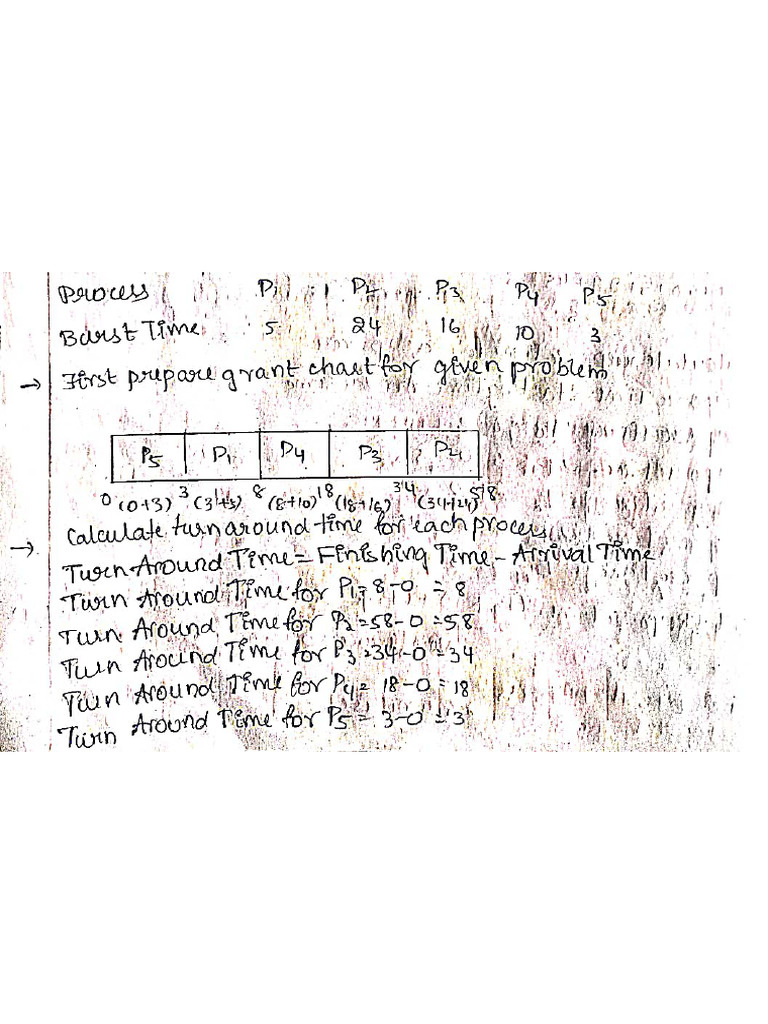 Process P1 P2 P3 P4 P5
Burst Time 5 24 16 10 3
→ First prepare grant chart for given problem
P5 P1 P4 P3 P2
0 (0+3) 3 (3+5) 8 (8+10) 18 (18+16) 34 (34+24) 58
→ Calculate turn around time for each process
Turn Around Time = Finishing Time - Arrival Time
Turn Around Time for P1 = 8-0 = 8
Turn Around Time for P2 = 58-0 = 58
Turn Around Time for P3 = 34-0 = 34
Turn Around Time for P4 = 18-0 = 18
Turn Around Time for P5 = 3-0 = 3